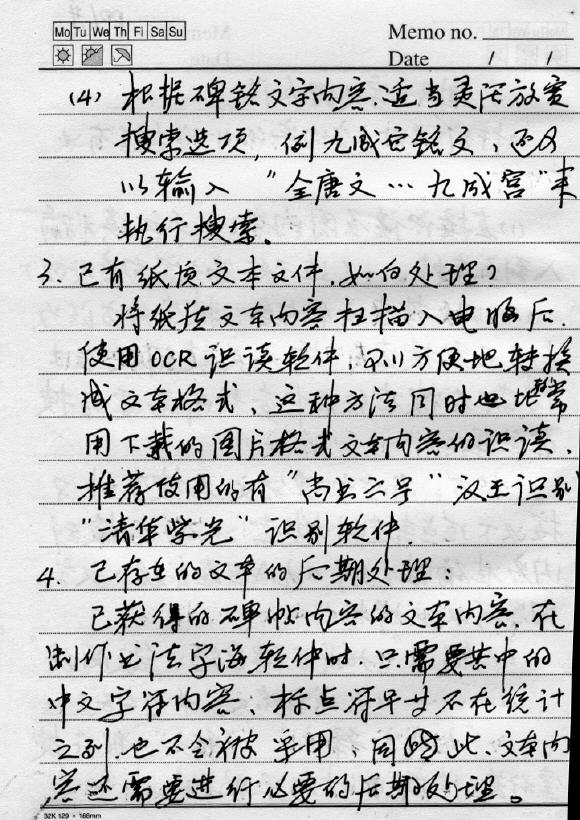 Mo Tu We Th Fi Sa Su
Memo no.
Date / /
(4) 根据碑铭文字内容,适当灵活放宽
搜索选项,例九成宫铭文,可以
以输入 "全唐文…九成宫"来
执行搜索。
3. 已有纸质文本文件,如何处理?
将纸张文本内容扫描入电脑后,
使用OCR识读软件,可以方便地转换
成文本格式、这种方法同时也
用下载的图片格式文本内容的识读,
推荐使用的有"尚书六号" 汉王识别
"清华紫光" 识别软件.
4. 已存在的文本的后期处理:
已获得的碑帖内容的文本内容,在
制作书法字海软件时,只需要其中的
中文字符内容、标点符号并不在统计
之列,也不会被采用,因此、文本内
容还需要进行必要的后期处理。
32K 129 × 166mm